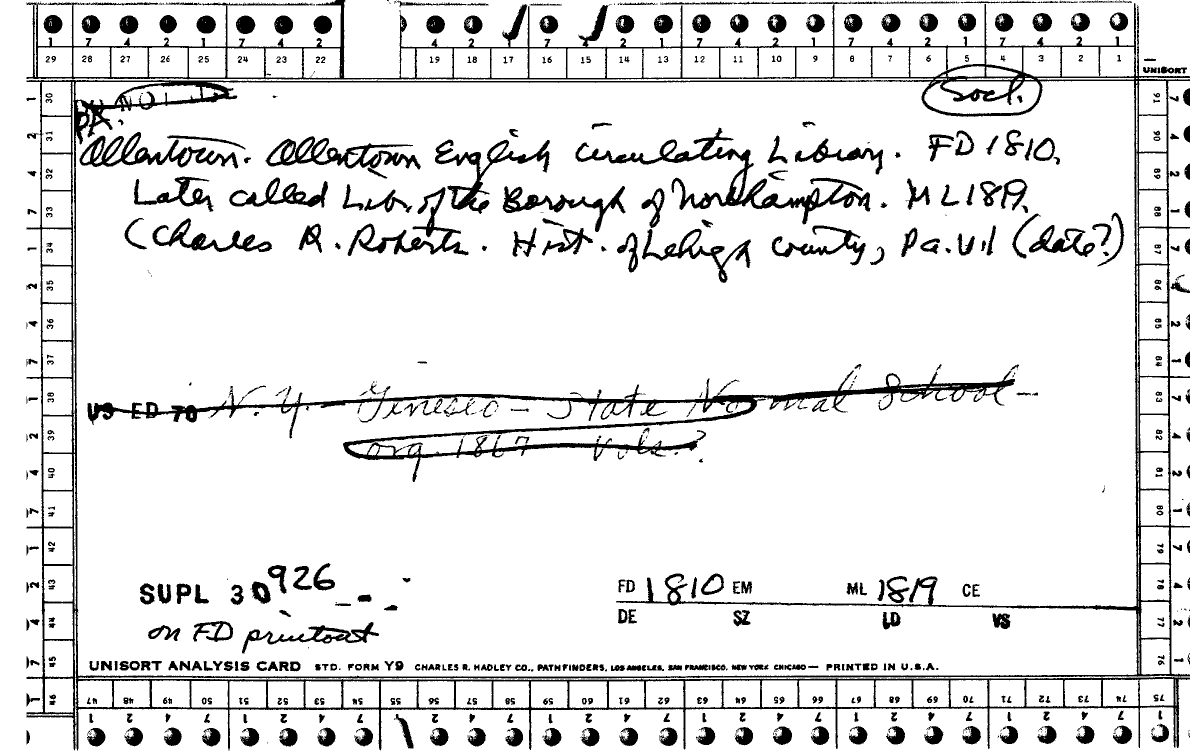 1 7 4 2 1 7 4 2 4 2 1 7 4 2 1 7 4 2 1 7 4 2 1 7 4 2 1
29 28 27 26 25 24 23 22 19 18 17 16 15 14 13 12 11 10 9 8 7 6 5 4 3 2 1
UNISORT
Socl.
PA.
Allentown. Allentown English Circulating Library. FD 1810.
Later called Lib. of the Borough of Northampton. ML 1819.
(Charles R. Roberts. Hist. of Lehigh County, Pa. v.1 (date?)
US ED 70 N.Y. Gineseo - State Normal School -
org. 1867 Vols.?
SUPL 30926
on FD printout
FD 1810 EM ML 1819 CE
DE SZ LD VS
UNISORT ANALYSIS CARD STD. FORM Y9 CHARLES R. HADLEY CO., PATHFINDERS, LOS ANGELES, SAN FRANCISCO, NEW YORK CHICAGO — PRINTED IN U.S.A.
47 48 49 50 51 52 53 54 55 56 57 58 59 60 61 62 63 64 65 66 67 68 69 70 71 72 73 74 75